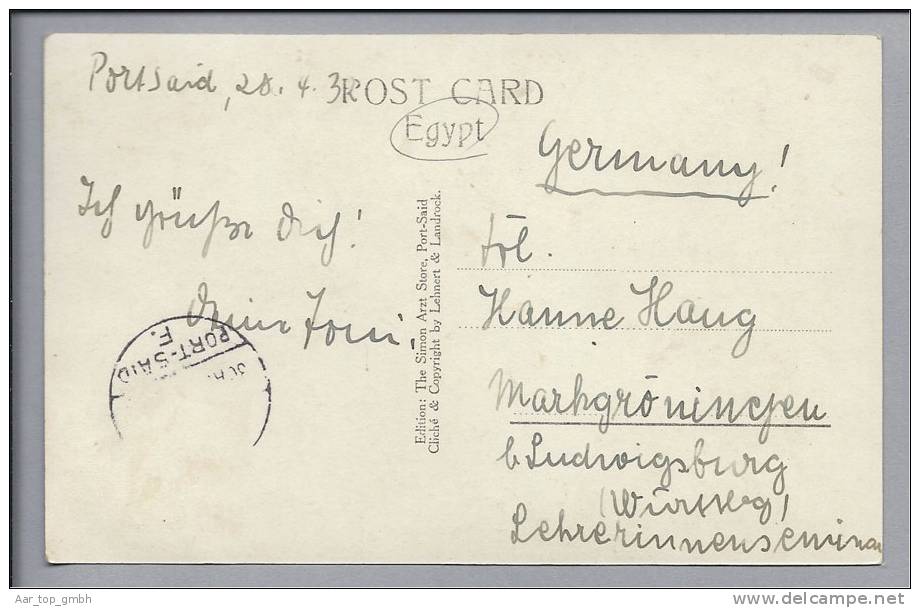 Portsaid, 28. 4. 3
POST CARD
Egypt
Germany!
Ich grüße Dich!
Deine Toni.
Frl.
Hanne Haug
Markgröningen
b. Ludwigsburg
(Württbg)
Lehrerinnenseminar
PORT-SAID
F.
Edition: The Simon Arzt Store, Port-Said
Cliché & Copyright by Lehnert & Landrock.
Aar_top_gmbh
delcampe.net